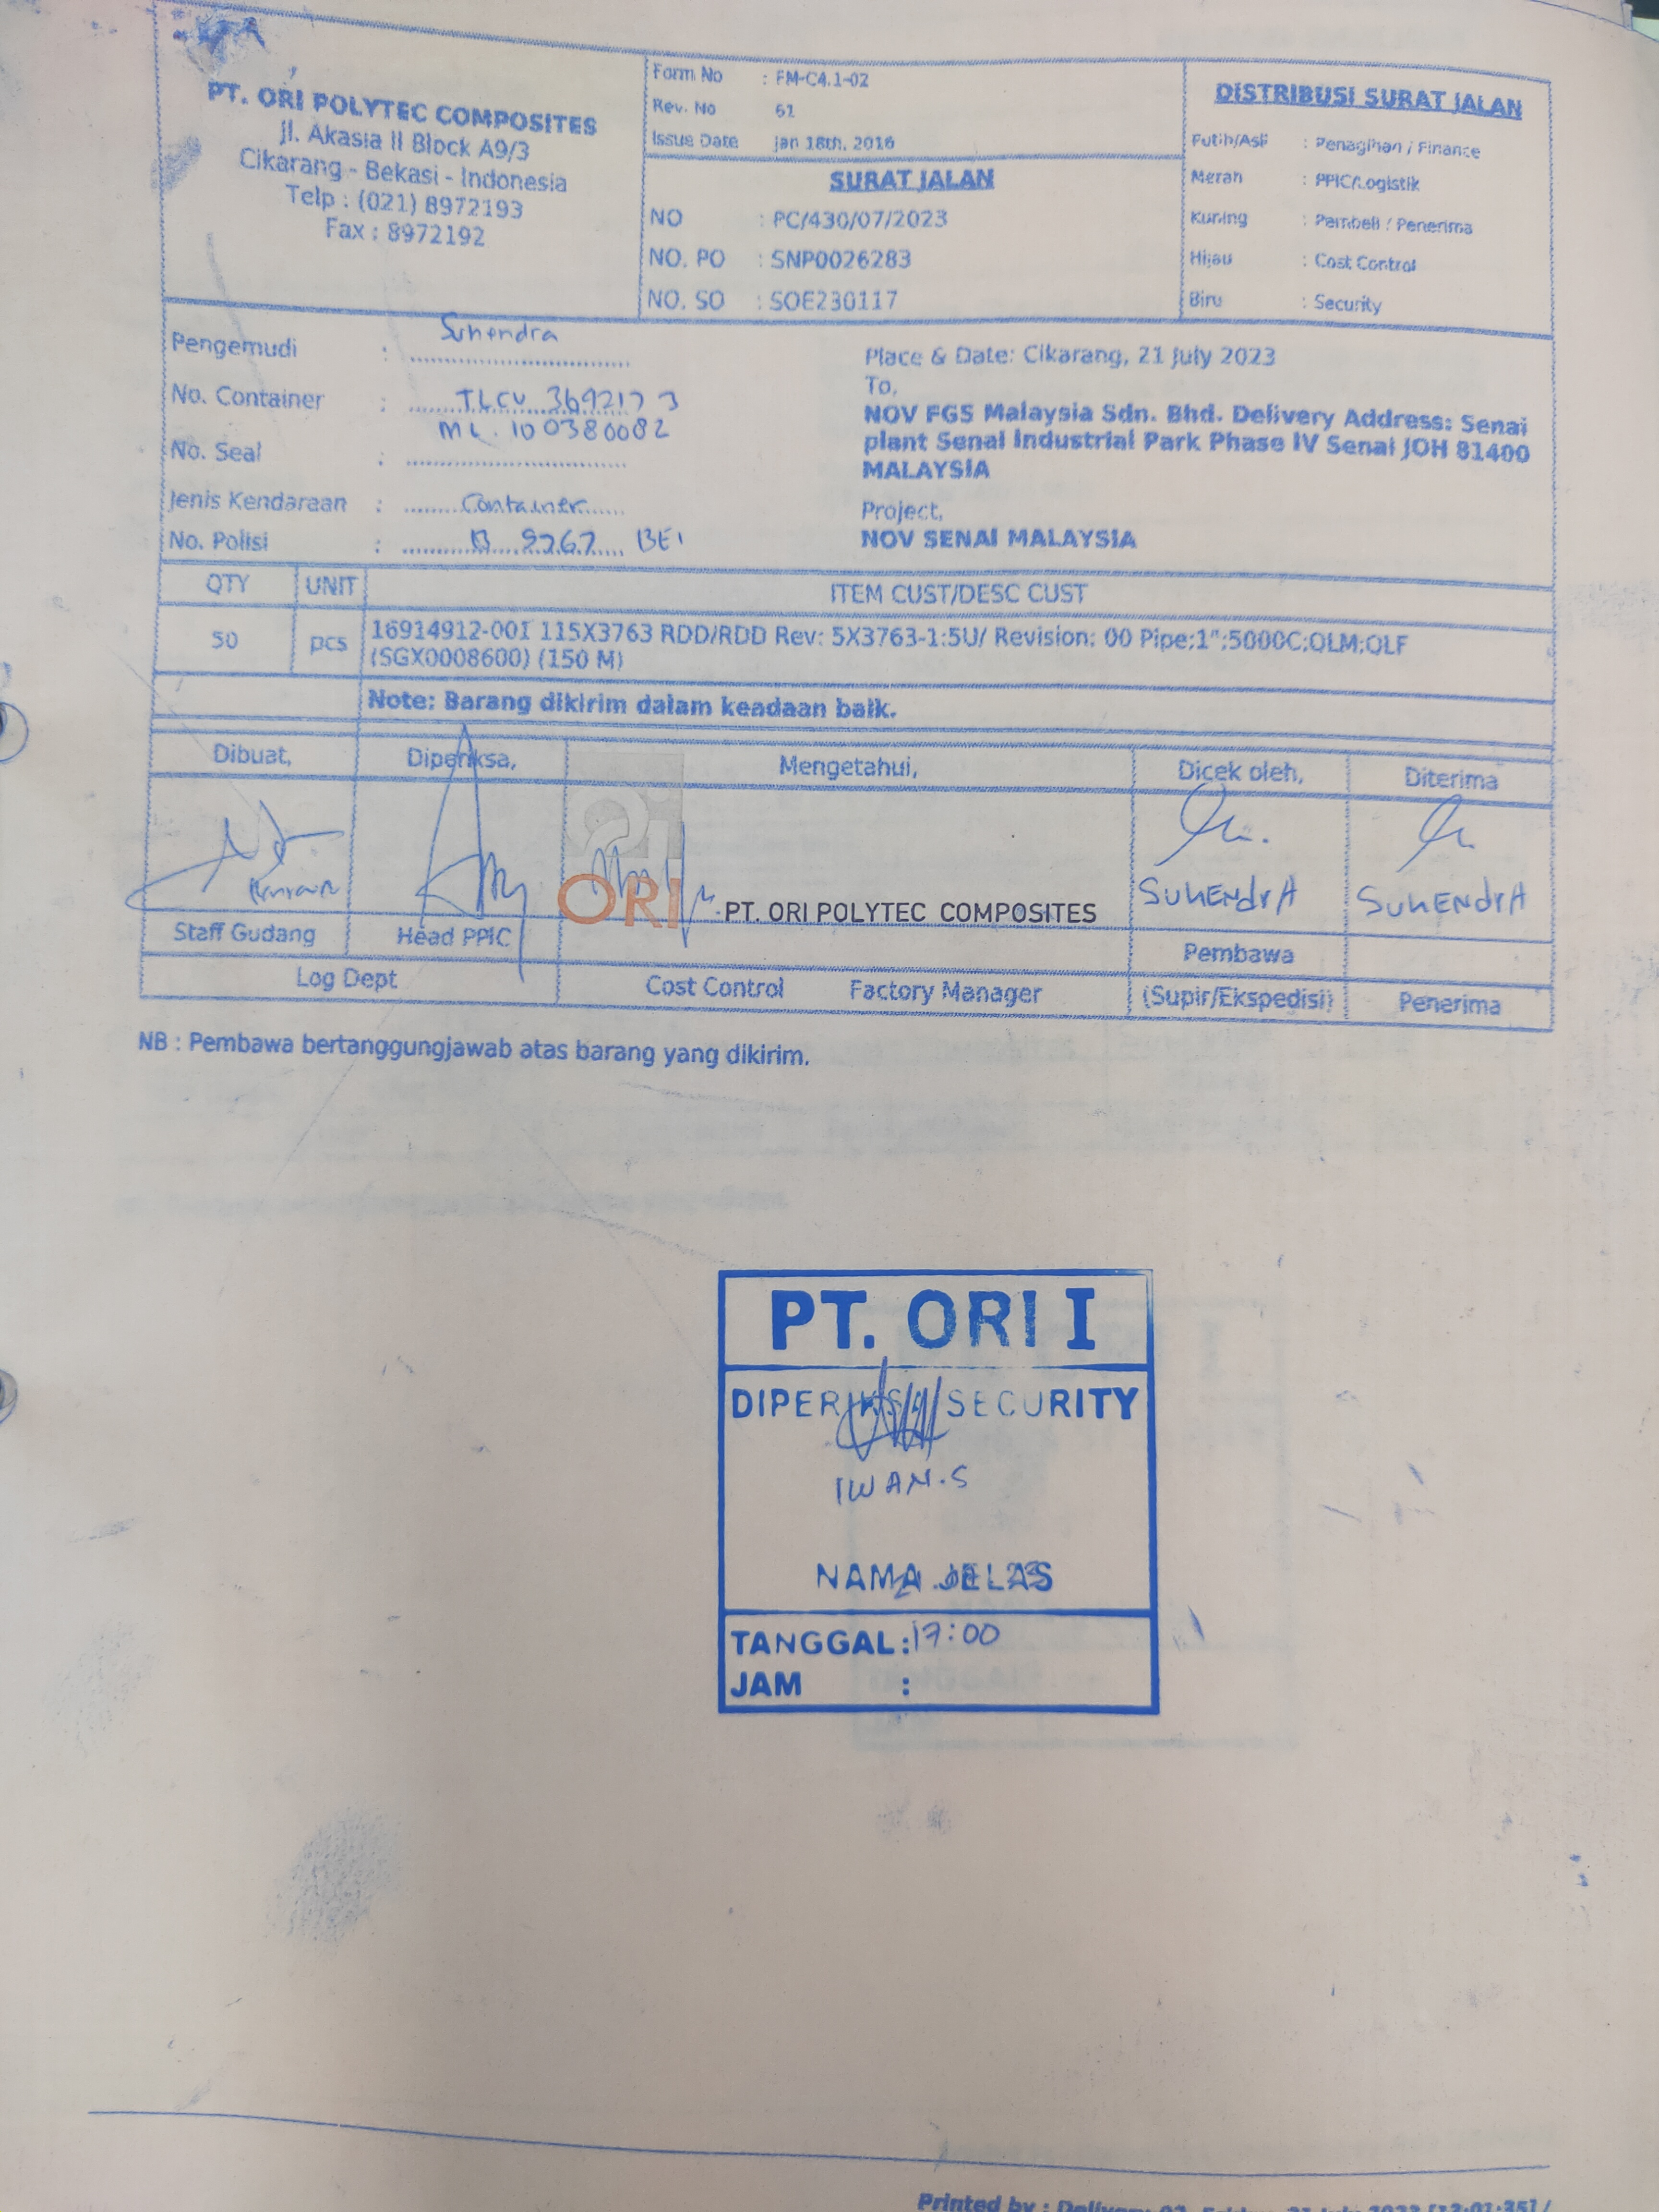 PT. ORI POLYTEC COMPOSITES
Jl. Akasia II Block A9/3
Cikarang - Bekasi - Indonesia
Telp : (021) 8972193
Fax : 8972192
Form No : FM-C4.1-02
Rev. No 61
Issue Date Jan 18th, 2016
SURAT JALAN
NO : PC/430/07/2023
NO. PO : SNP0026283
NO. SO : SOE230117
DISTRIBUSI SURAT JALAN
Putih/Asli : Penagihan / Finance
Merah : PPIC/Logistik
Kuning : Pembeli / Penerima
Hijau : Cost Control
Biru : Security
Pengemudi : Suhendra
No. Container : TLCU 3692173
No. Seal : ML. 100380082
Jenis Kendaraan : Container
No. Polisi : B 9267 BEI
Place & Date: Cikarang, 21 July 2023
To,
NOV FGS Malaysia Sdn. Bhd. Delivery Address: Senai
plant Senai Industrial Park Phase IV Senai JOH 81400
MALAYSIA
Project,
NOV SENAI MALAYSIA
QTY UNIT ITEM CUST/DESC CUST
50 pcs 16914912-001 115X3763 RDD/RDD Rev: 5X3763-1:5U/ Revision: 00 Pipe;1";5000C;QLM;QLF
(SGX0008600) (150 M)
Note: Barang dikirim dalam keadaan baik.
Dibuat, Diperiksa, Mengetahui, Dicek oleh, Diterima
ORI PT. ORI POLYTEC COMPOSITES
SUHENDRA SUHENDRA
Staff Gudang Head PPIC Pembawa
Log Dept Cost Control Factory Manager (Supir/Ekspedisi) Penerima
NB : Pembawa bertanggungjawab atas barang yang dikirim.
PT. ORI I
DIPERIKSA SECURITY
IWAN.S
NAMA JELAS
TANGGAL : 17:00
JAM :